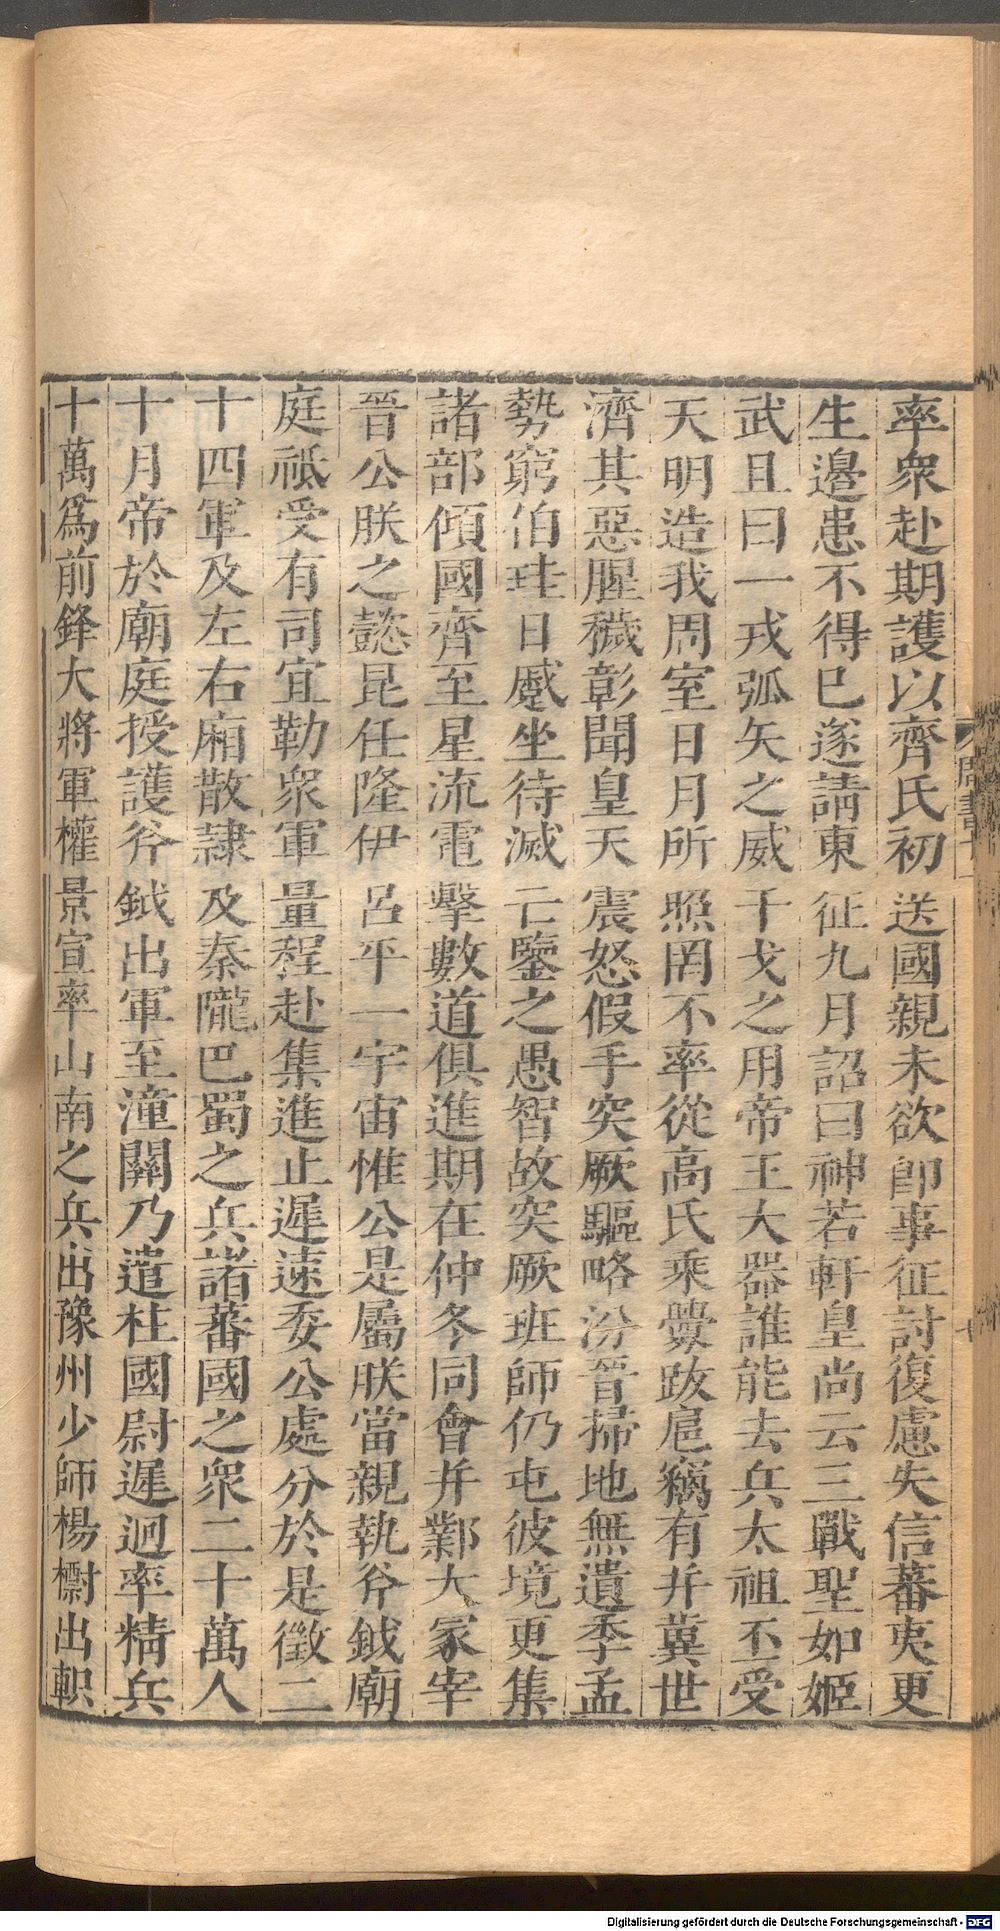 率衆赴期護以齊氏初送國親未欲卽事征討復慮失信蕃夷更
生邊患不得巳遂請東征九月詔曰神若軒皇尚云三戰聖如姬
武且曰一戎弧矢之威干戈之用帝王大器誰能去兵太祖丕受
天明造我周室日月所照罔不率從高氏乘釁跋扈竊有幷冀世
濟其惡腥穢彰聞皇天震怒假手突厥驅略汾晉掃地無遺季孟
勢窮伯珪日蹙坐待滅亡鑒之愚智故突厥班師仍屯彼境更集
諸部傾國齊至星流電擊數道俱進期在仲冬同會幷鄴大冢宰
晉公朕之懿昆任隆伊呂平一宇宙惟公是屬朕當親執斧鉞廟
庭祗受有司宜勒衆軍量程赴集進止遲速委公處分於是徵二
十四軍及左右廂散隷及秦隴巴蜀之兵諸蕃國之衆二十萬人
十月帝於廟庭授護斧鉞出軍至潼關乃遣柱國尉遲迥率精兵
十萬爲前鋒大將軍權景宣率山南之兵出豫州少師楊㯹出軹
Digitalisierung gefördert durch die Deutsche Forschungsgemeinschaft - DFG